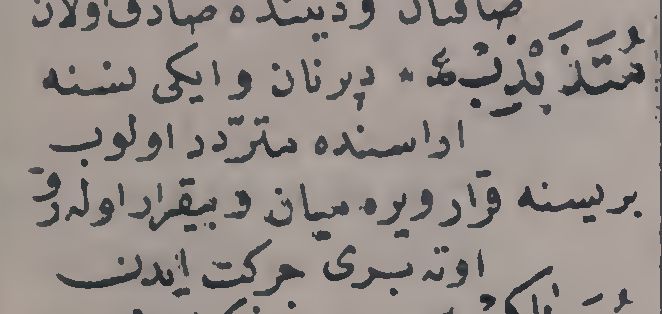 صاقنان و دیننده صادق اولان
مُتَذَبْذِبْ دپرنان و ایکی نسنه
اراسنده متردّد اولوب
بریسنه قرار ویره میان و بیقرار اوله و
اوته بری حرکت ایدن